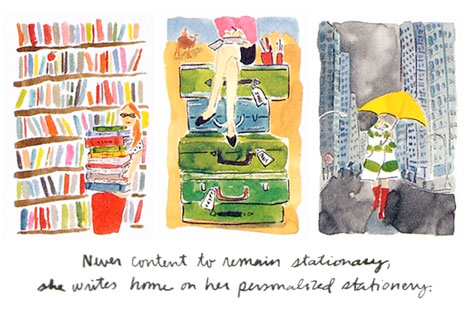 Never content to remain stationary,
she writes home on her personalized stationery.